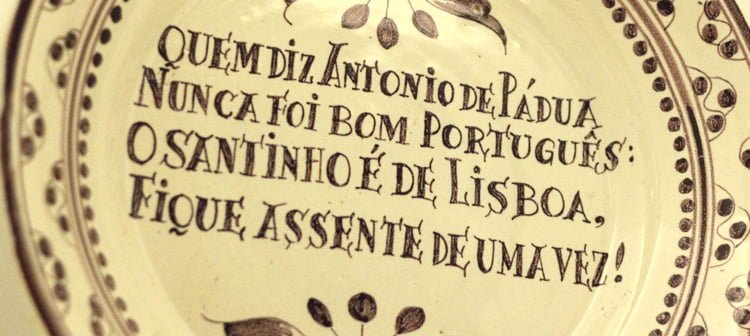 QUEM DIZ ANTONIO DE PÁDUA
NUNCA FOI BOM PORTUGUÊS:
O SANTINHO É DE LISBOA,
FIQUE ASSENTE DE UMA VEZ!